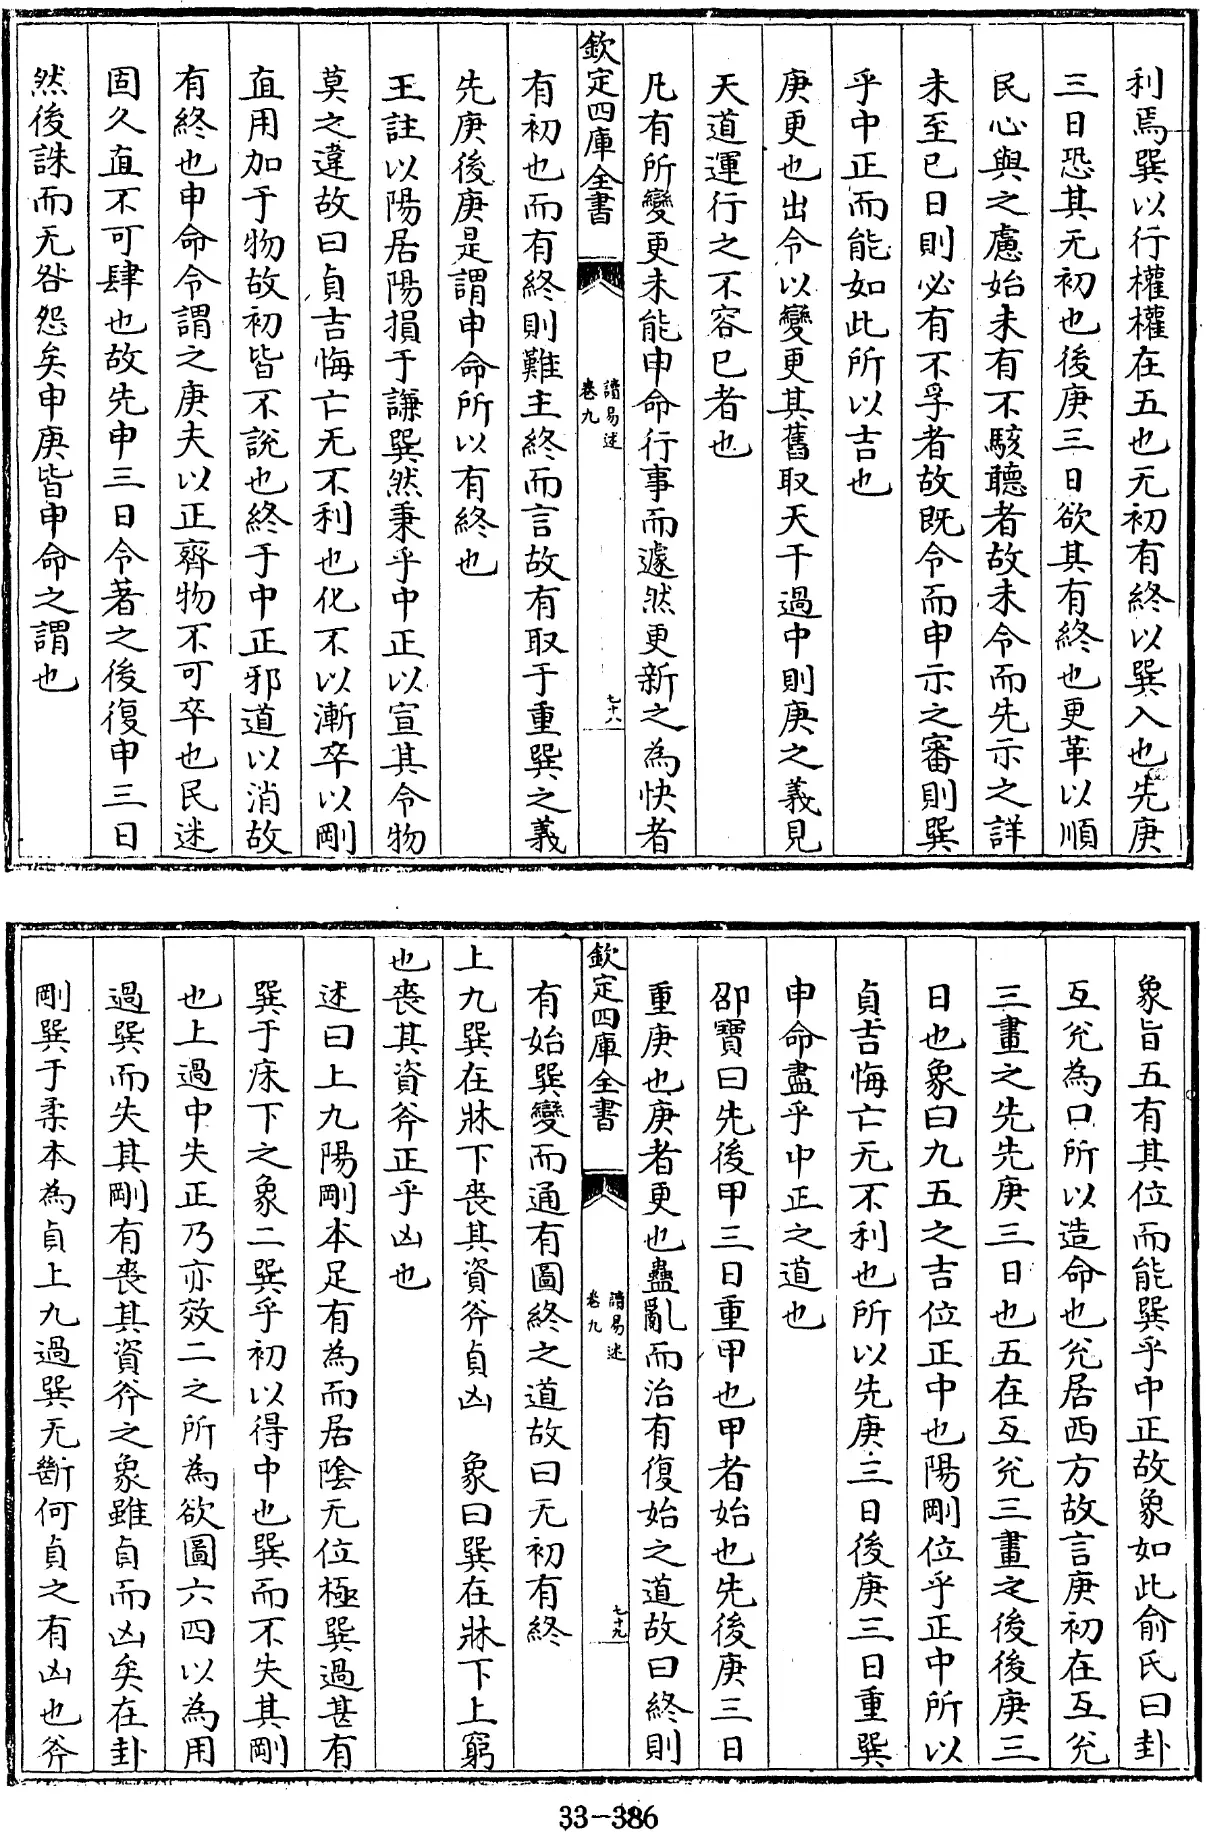 利焉巽以行權權在五也无初有終以巽入也先庚
三日恐其无初也後庚三日欲其有終也更革以順
民心與之慮始未有不駭聽者故未令而先示之詳
未至已日則必有不孚者故既令而申示之審則巽
乎中正而能如此所以吉也
庚更也出令以變更其舊取天干過中則庚之義見
天道運行之不容已者也
凡有所變更未能申命行事而遽然更新之為快者
欽定四庫全書
讀易述
卷九
七十八
有初也而有終則難主終而言故有取于重巽之義
先庚後庚是謂申命所以有終也
王註以陽居陽損于謙巽然秉乎中正以宣其令物
莫之違故曰貞吉悔亡无不利也化不以漸卒以剛
直用加于物故初皆不說也終于中正邪道以消故
有終也申命令謂之庚夫以正齊物不可卒也民迷
固久直不可肆也故先申三日令著之後復申三日
然後誅而无咎怨矣申庚皆申命之謂也
象旨五有其位而能巽乎中正故象如此俞氏曰卦
互兊為口所以造命也兊居西方故言庚初在互兊
三畫之先先庚三日也五在互兊三畫之後後庚三
日也象曰九五之吉位正中也陽剛位乎正中所以
貞吉悔亡无不利也所以先庚三日後庚三日重巽
申命盡乎中正之道也
邵寶曰先後甲三日重甲也甲者始也先後庚三日
重庚也庚者更也蠱亂而治有復始之道故曰終則
欽定四庫全書
讀易述
卷九
七十九
有始巽變而通有圖終之道故曰无初有終
上九巽在牀下喪其資斧貞凶　象曰巽在牀下上窮
也喪其資斧正乎凶也
述曰上九陽剛本足有為而居陰无位極巽過甚有
巽于床下之象二巽乎初以得中也巽而不失其剛
也上過中失正乃亦效二之所為欲圖六四以為用
過巽而失其剛有喪其資斧之象雖貞而凶矣在卦
剛巽于柔本為貞上九過巽无斷何貞之有凶也斧
33-386